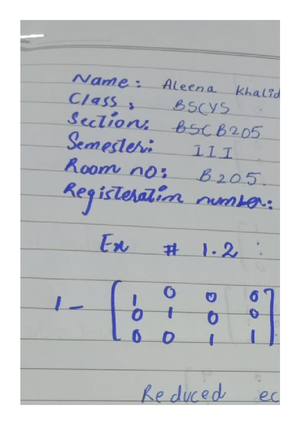 Name: Aleena Khalid
Class: BSCYS
Section: BSCB205
Semester: III
Room no: B205.
Registeration number:
Ex # 1.2 :
1- [ 1 0 0 0 ]
0 1 0 0
0 0 1 1
Reduced ec